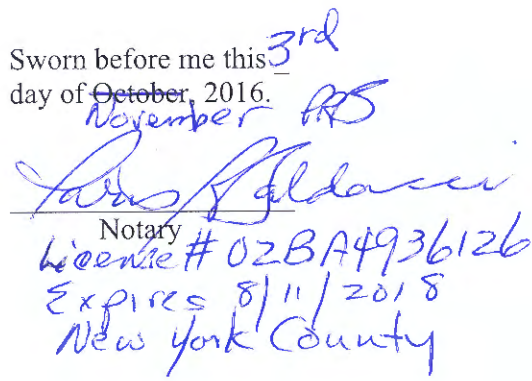 Sworn before me this 3rd
day of October, 2016.
November PRB
Paris R Baldacci
Notary
License # 02BA4936126
Expires 8/11/2018
New York County